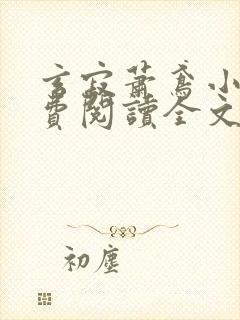 言寂蕭鳶小
費閱讀全文
初塵